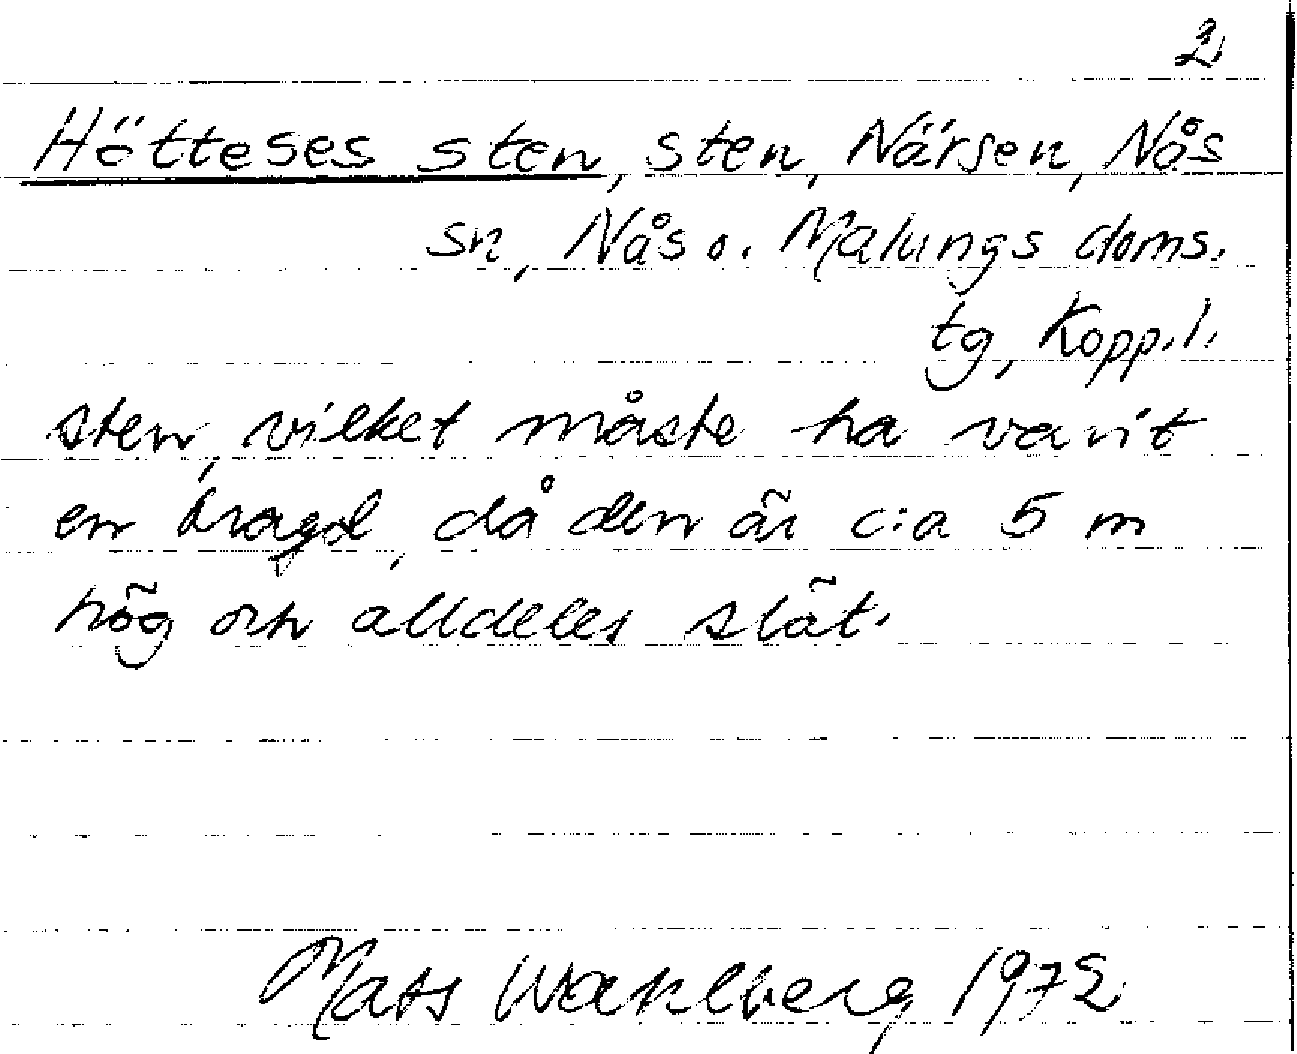 2
Hötteses sten, sten, Närsen, Nås
sn, Nås o. Malungs doms.
tg, Kopp.l.
sten, vilket måste ha varit
en bragd, då den är c:a 5 m
hög och alldeles slät.
Mats Wahlberg 1972